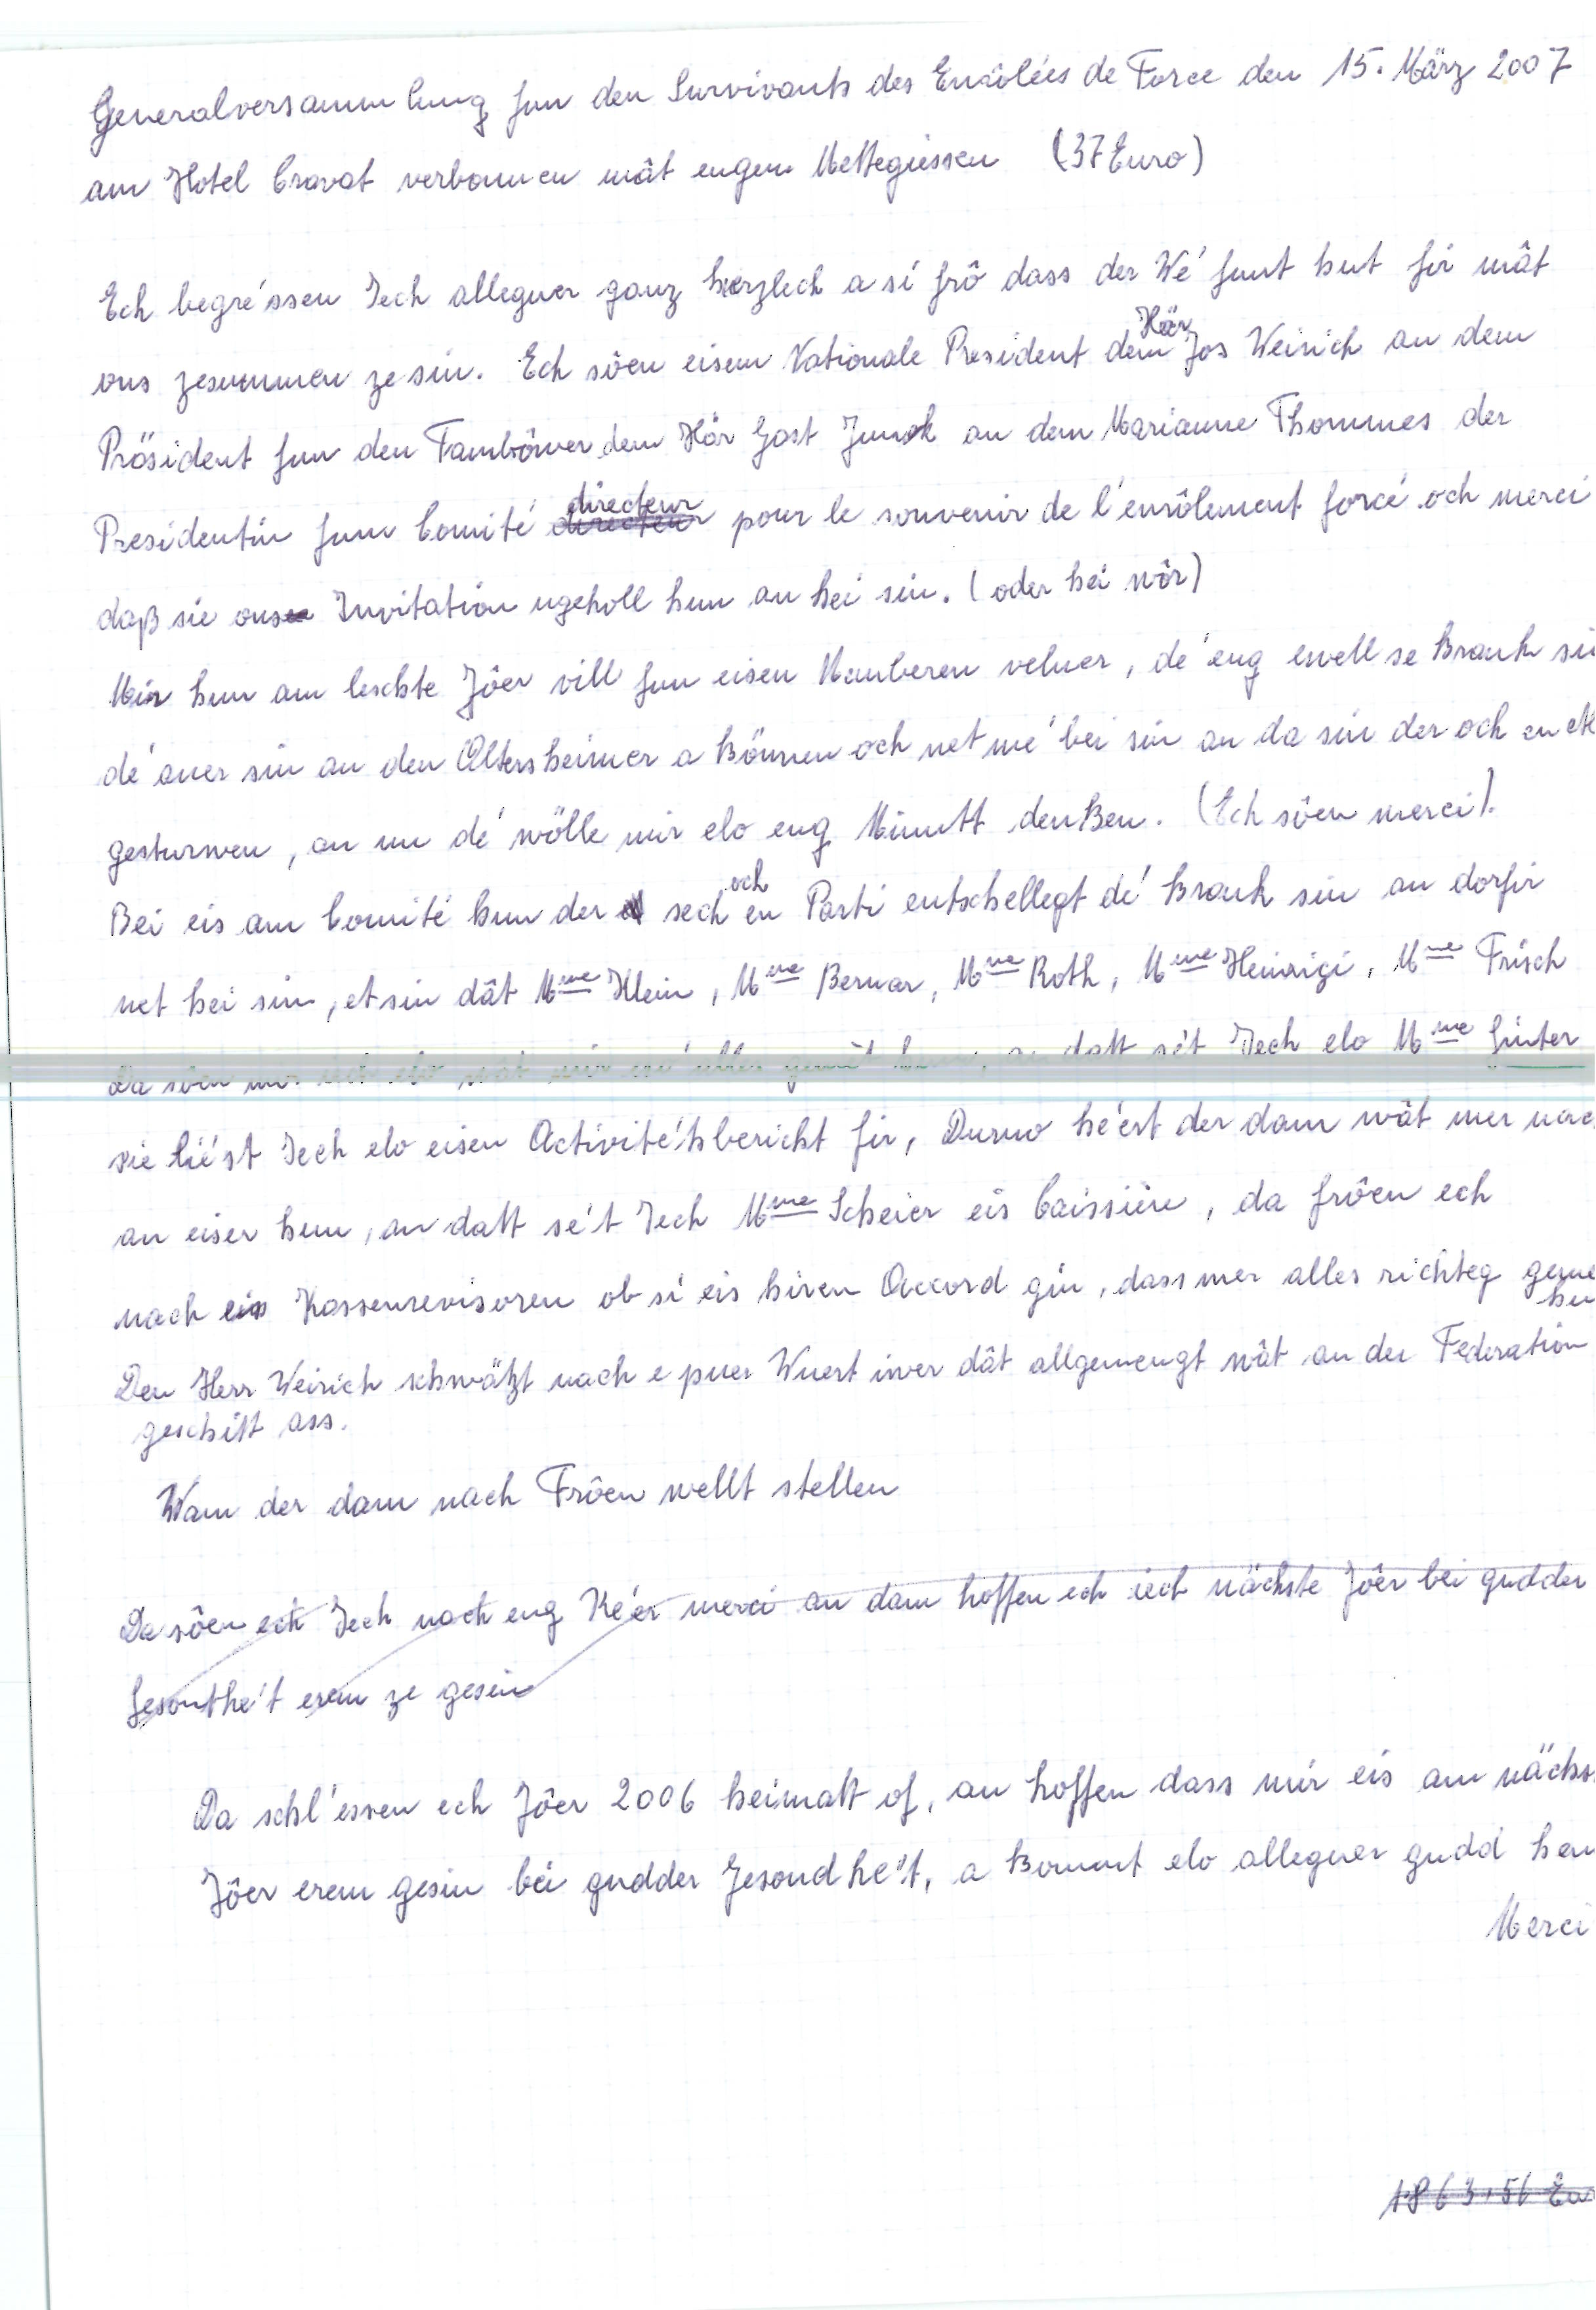 Generalversammlung fun den Survivants des Enrôlées de Force den 15. März 2007
am Hotel Cravat verbonnen mât engem Mettegiessen (37 Euro)
Ech begréssen Iech alleguer ganz herzlech a si frô dass der Wé funt hut fir mât
ons zesummen ze sin. Ech sôen eisem Nationale President dem Här Jos Weirich an dem
Präsident fun den Tambôuer dem Här Gast Junck an dem Marianne Thommes der
Presidentin fum Comité directeur pour le souvenir de l'enrôlement forcé och merci
daß sie ons Invitation ugeholl hun an hei sin. (oder hei wôr)
Mir hun am leschte Jôer vill fun eisen Memberen veluer, dé eng ewell se krank si
dé aner sin an den Altersheimer a können och net mé bei sin an da sin der och en etl
gesturwen, an un dé wölle mir elo eng Minutt denken. (Ech sôen merci).
Bei eis am Comité hun der sech och en Parti entschellegt dé krank sin an dorfir
net hei sin, et sin dât Mme Klein, Mme Bernar, Mme Roth, Mme Heinrigi, Mme Frisch
Da sôen datt sét Iech elo Mme Ginter
sie liést Iech elo eisen Activitétsbericht fir, Duerno héert der dann wât mer
an eiser hun, an datt sét Iech Mme Scheier eis Caissière, da frôen ech
nach eis Kassenrevisoren ob si eis hiren Accord gin, dass mer alles richteg
hu
Den Herr Weirich schwätzt nach e puer Wuert iwer dât allgemengt wât an der Federation
geschitt ass.
Wann der dann nach Frôen wellt stellen
Da sôen ech Iech nach eng Kéer merci an dann hoffen ech iech nächste Jôer bei gudder
Gesonthét erem ze gesin
Da schléssen ech Jôer 2006 heimatt of, an hoffen dass mir eis am nächs
Jôer erem gesin bei gudder Gesondhét, a kommt elo alleguer gudd hem
Merci
1863,56 Eu